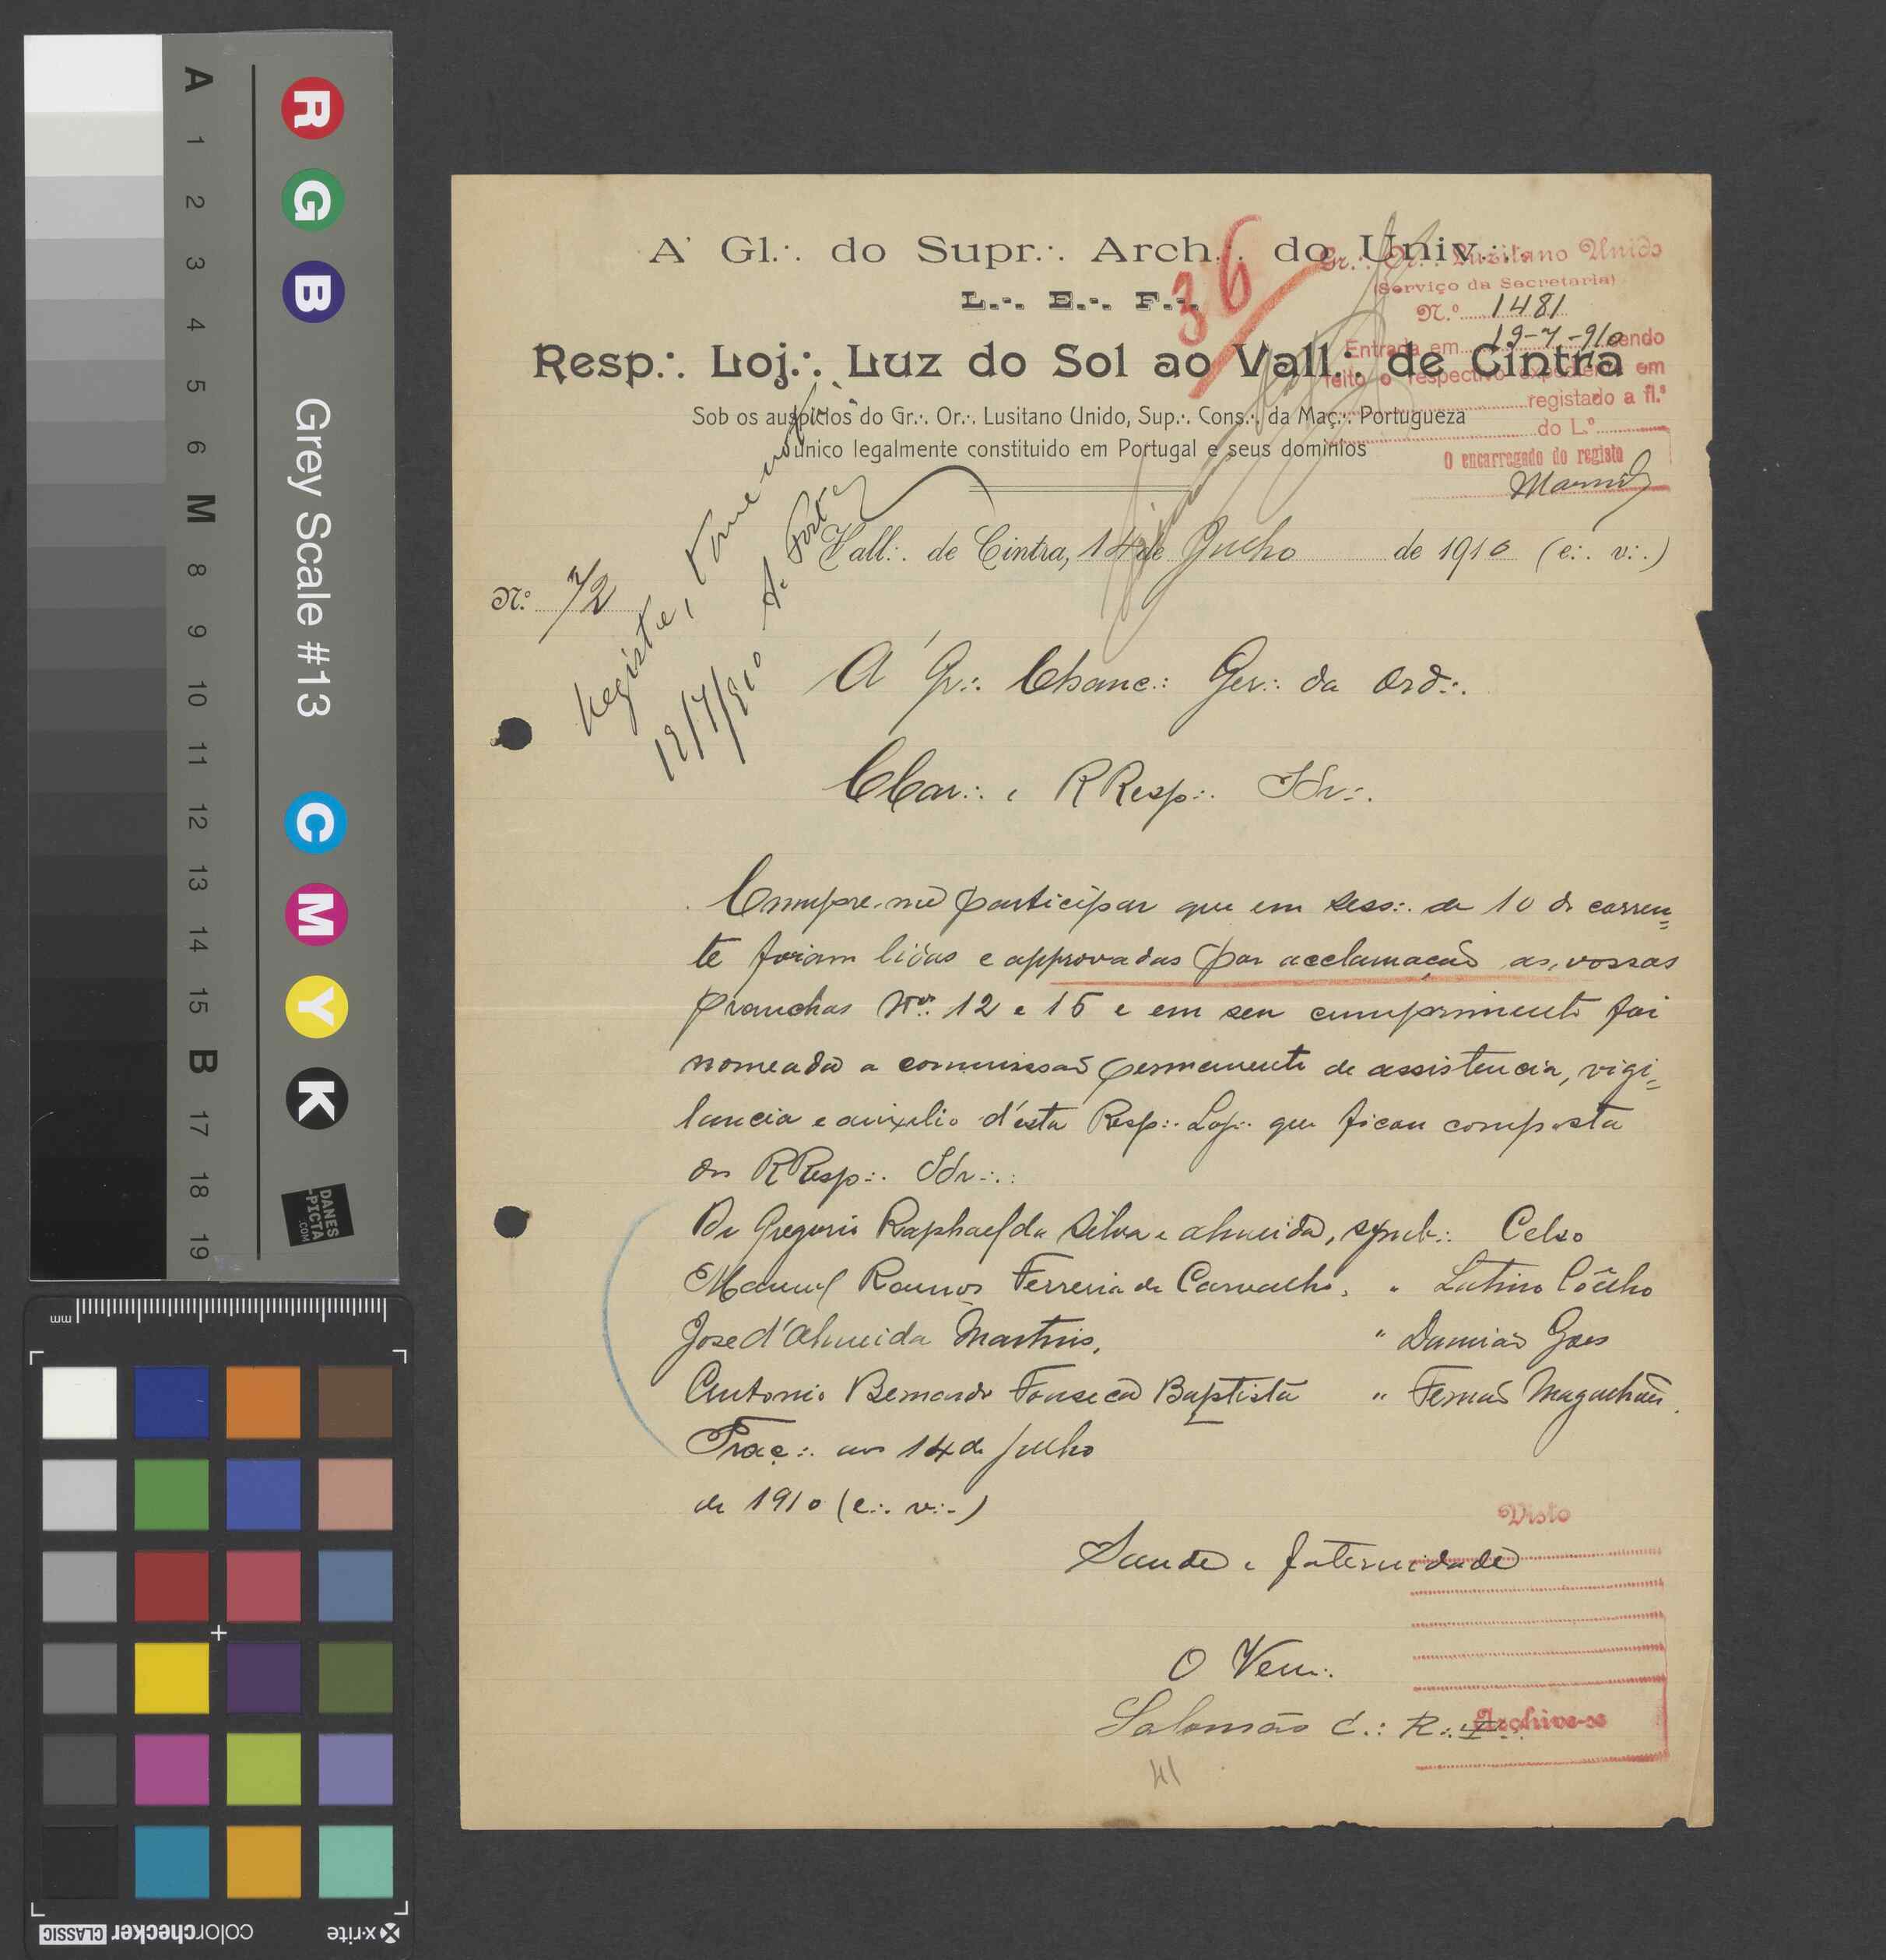 A' Gl.·. do Supr.·. Arch.·. do Univ.·.
L.·. E.·. F.·.
Resp.·. Loj.·. Luz do Sol ao Vall.·. de Cintra
Sob os auspicios do Gr.·. Or.·. Lusitano Unido, Sup.·. Cons.·. da Maç.·. Portugueza
unico legalmente constituido em Portugal e seus dominios
36
Gr.·. Or.·. Luzitano Unido
(Serviço da Secretaria)
N.º 1481
Entrada em 19-7-910 sendo
feito o respectivo expediente em
registado a fl.ª
do L.º
O encarregado do registo
Vall.·. de Cintra, 14 de Julho de 1910 (e.·. v.·.)
N.º 72
Registe,
19/7/910
Á Gr.·. Chanc.·. Ger.·. da Ord.·.
CCar.·. e RResp.·. IIr.·.
Cumpre-me participar que em sess.·. de 10 do corren=
te foram lidas e approvadas por acclamação as vossas
pranchas Nos. 12 e 15 e em seu cumprimento foi
nomeada a commissão permanente de assistencia, vigi=
lancia e auxilio d'esta Resp.·. Loj.·. que ficou composta
dos RResp.·. IIr.·.:
Dr Gregorio Raphael da Silva e Almeida, symb.·. Celso
Manuel Ramos Ferreira de Carvalho, " Latino Coêlho
José d'Almeida Martins, " Damião Goes
Antonio Bernardo Fonseca Baptista " Fernão Magalhães.
Traç.·. aos 14 de Julho
de 1910 (e.·. v.·.)
Saude e fraternidade
O Ven.·.
Salomão C.·. R.·.
Visto
Archive-se
41
A 1 2 3 4 5 6 M 8 9 10 11 12 13 14 15 B 17 18 19
R G B Grey Scale #13 C M Y K
DANES
-PICTA
.COM
mm
x-rite colorchecker CLASSIC